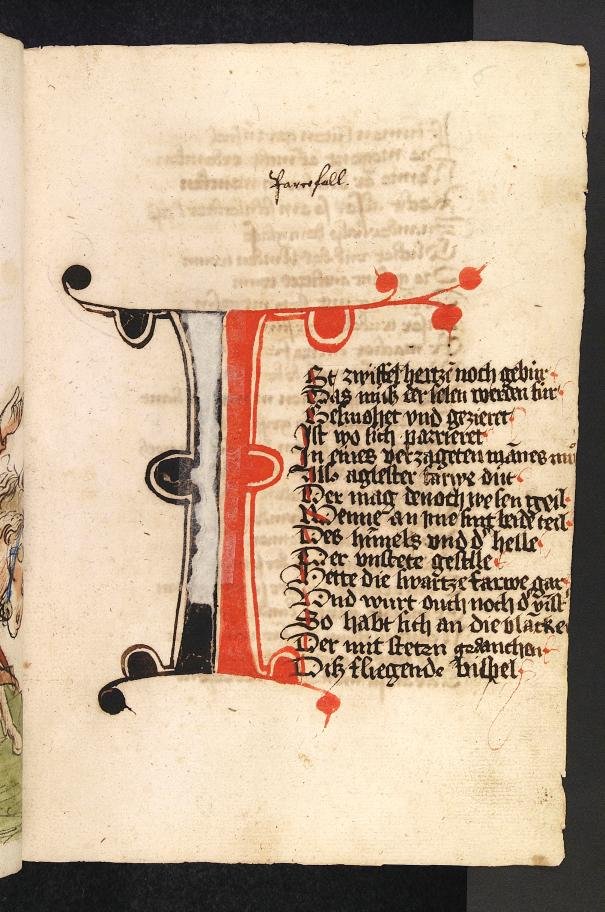 Parcifall.
I
St zwiffel hertzē noch gebur
Das muß der selen werden sur
Gesmohet vnd gezieret
Ist wo sich parrieret
In eines verzageten mānes mů
Also aglester farwe důt
Der mag denoch wesen geil
Wenne an yme sint beide teil
Des hūmels vnd d' helle
Der vnstete geselle
Hette die swartze farwe gar
Vnd wurt ouch noch d' vīst
So habt sich an die blacke
Der mit steten gedancken
Diß fliegende bispel